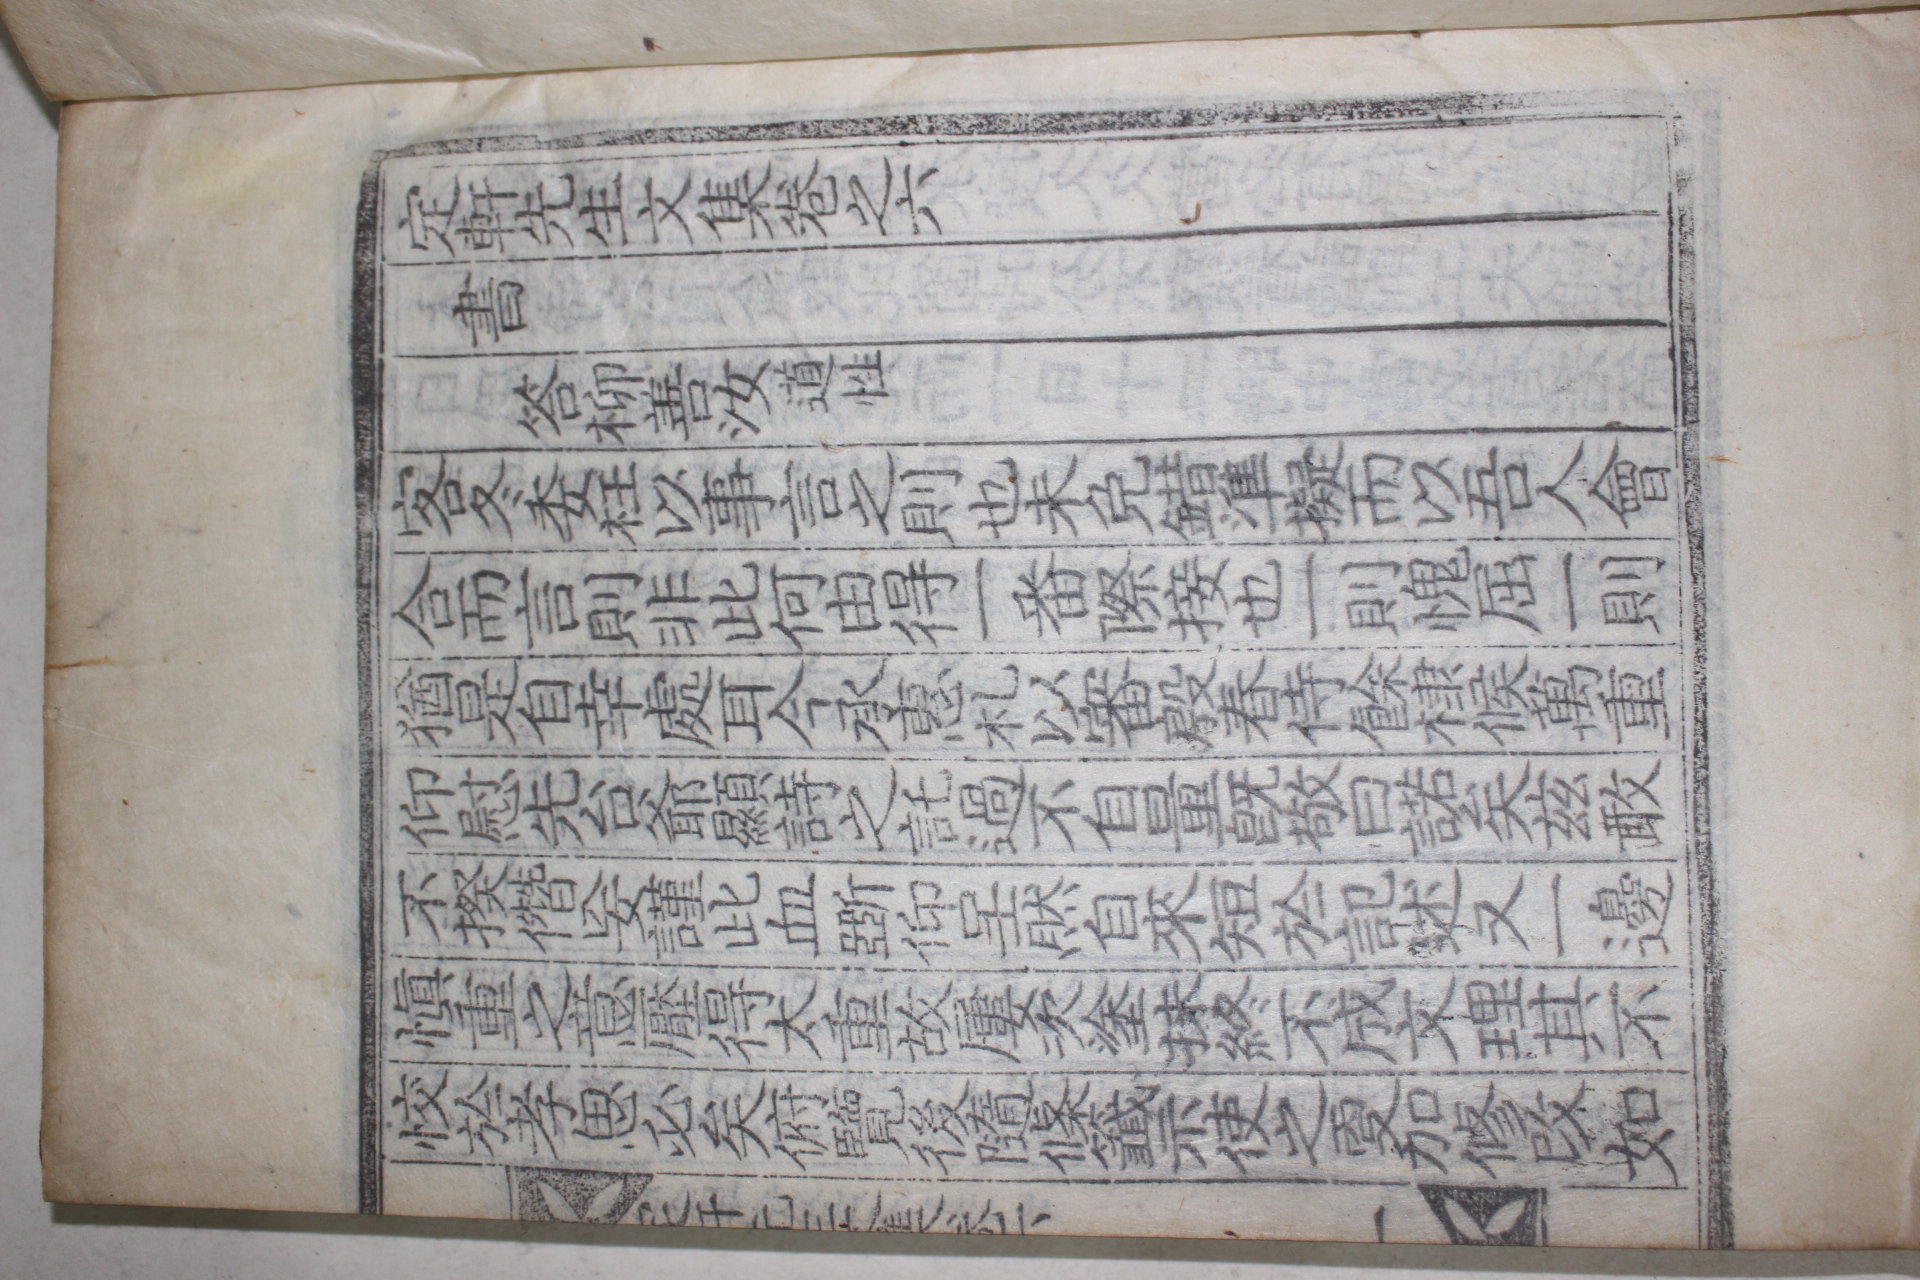 定軒先生文集卷之六
書
答柳善汝道性
客冬委枉以事言之則也未免錯準擬而以吾人會
合而言則非此何由得一番際接也一則愧屈一則
猶是自幸處耳今承惠札以審殷春侍餘棣候萬重
仰慰先台爺顯詩之託過不自量旣敬曰諾矣玆敢
不揆僭妄謹此血斵仰呈然自來短於記述又一邊
愼重之意壓得太重故屢次塗抹終不成文理其不
恔於孝思必矣俯覽後隨條籤示使之更加修改如
定軒先生文集卷六
一